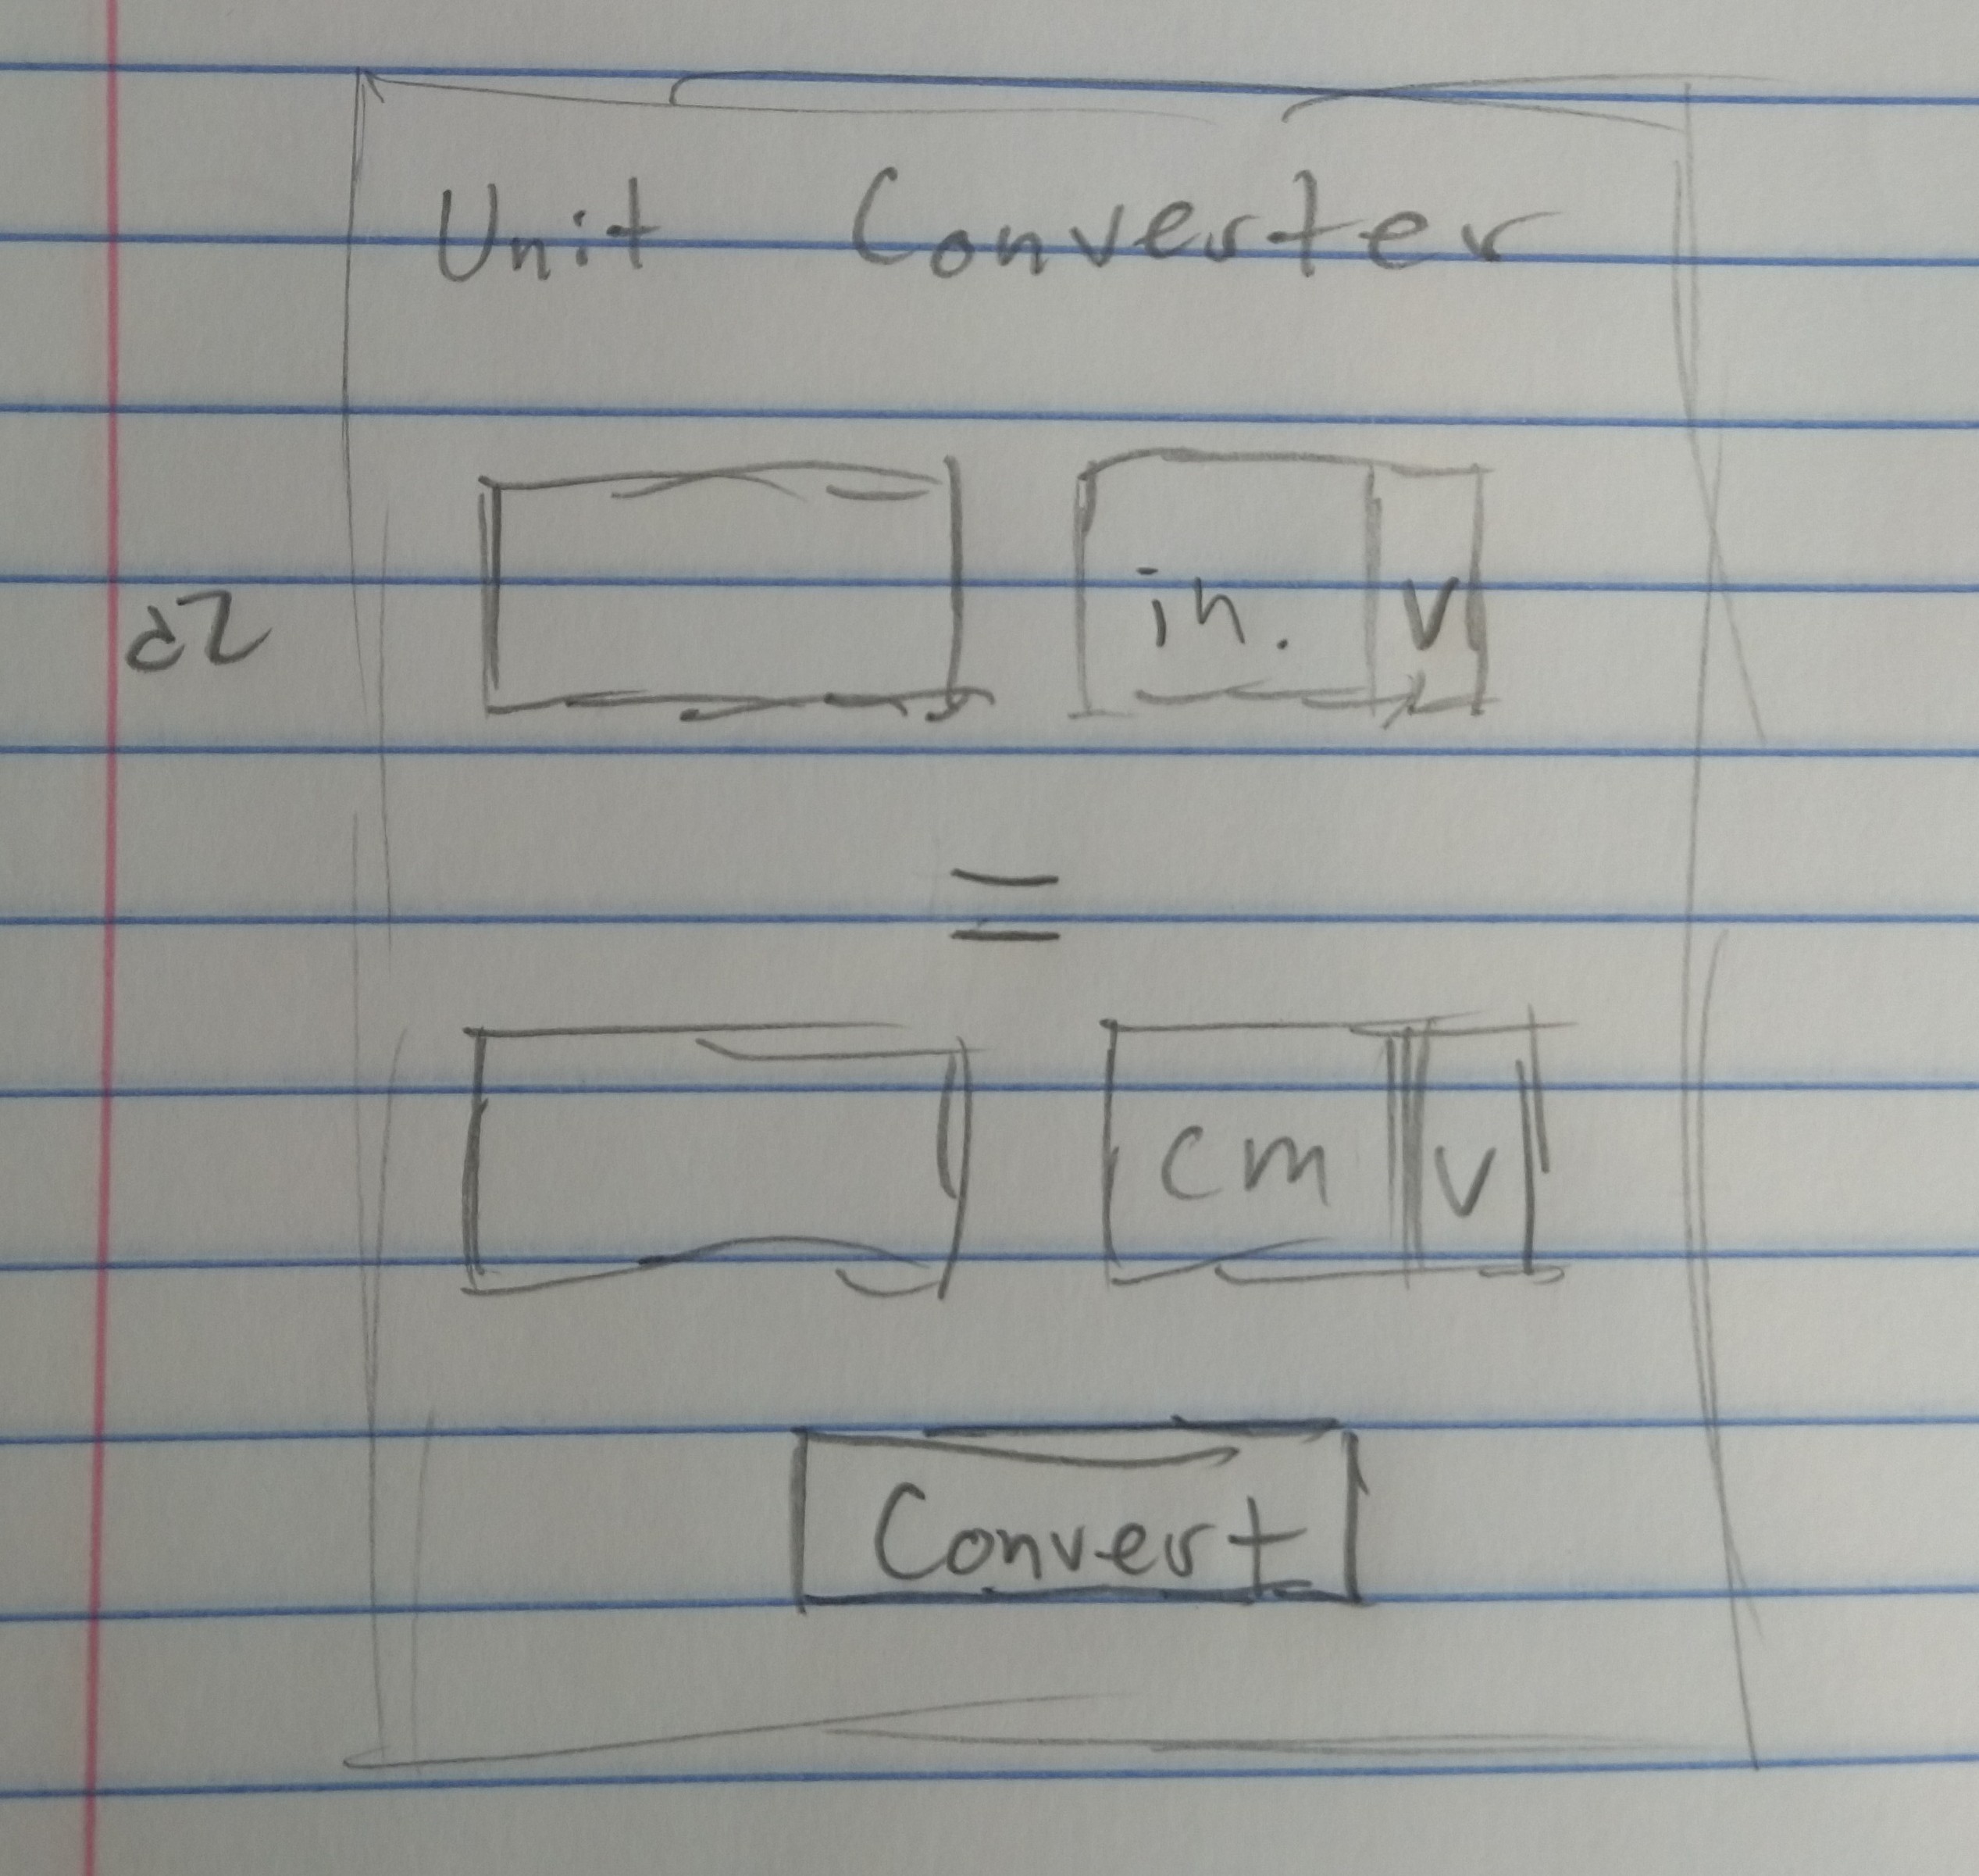 Unit Converter
in. v
=
cm v
Convert